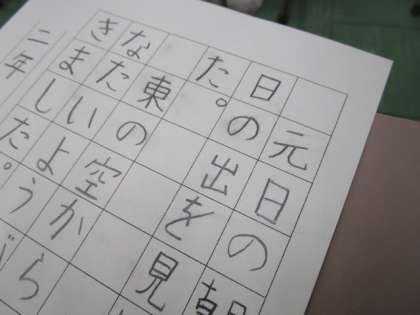 元日の朝
日の出を見
た。
東の空から
なたいようが
きました。
二年